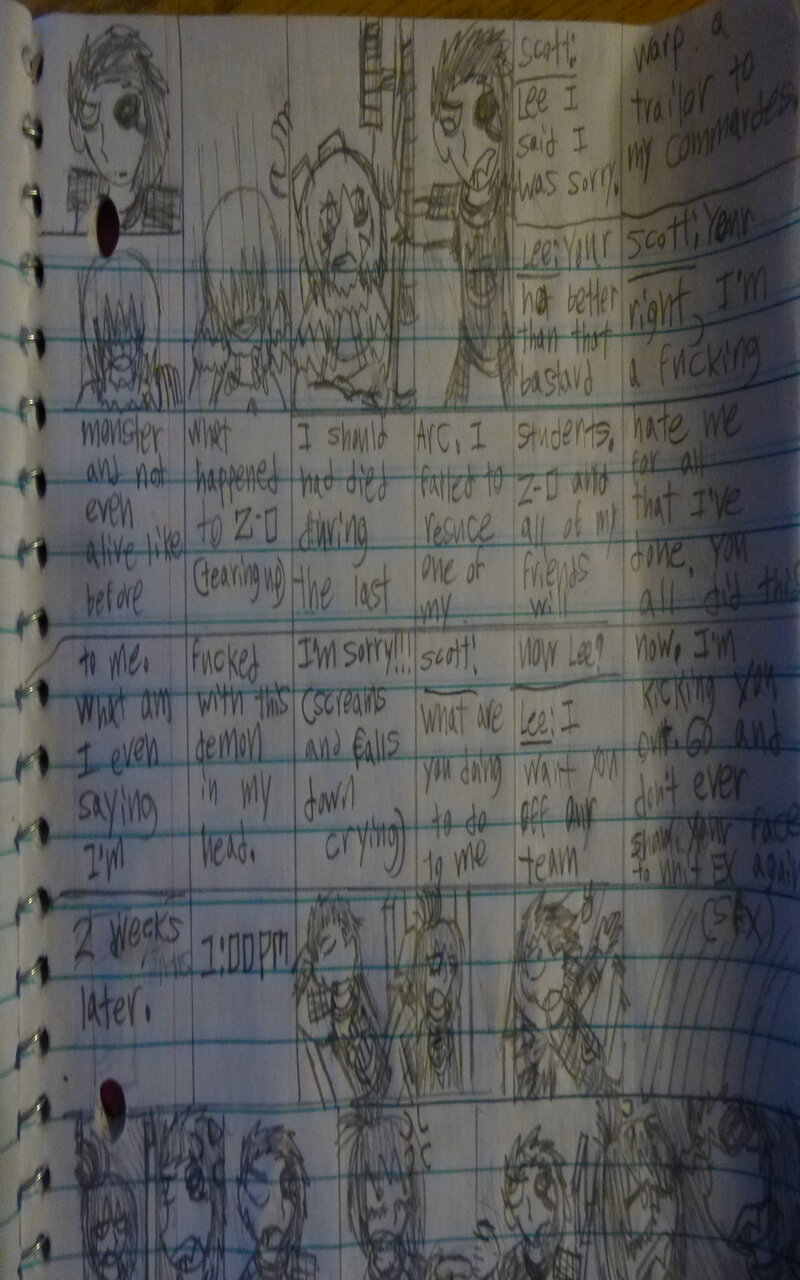 Scott:
Lee I
said I
was sorry.
Lee: Your
no better
than that
bastard
warp a
trailor to
my commardes.
Scott: Your
right, I'm
a fucking
monster
and not
even
alive like
before
what
happened
to Z-0
(tearing up)
I should
had died
during
the last
Arc, I
failed to
resuce
one of
my
students,
Z-0 and
all of my
friends
will
hate me
for all
that I've
done. You
all did this
to me.
What am
I even
saying
I'm
fucked
with this
demon
in my
head.
I'm sorry!!!
(screams
and falls
down
crying)
Scott:
What are
you doing
to do
to me
now Lee?
Lee: I
want you
off our
team
now, I'm
kicking you
out. Go and
don't ever
show your face
to unit EX again
2 weeks
later.
1:00PM
(SFX)